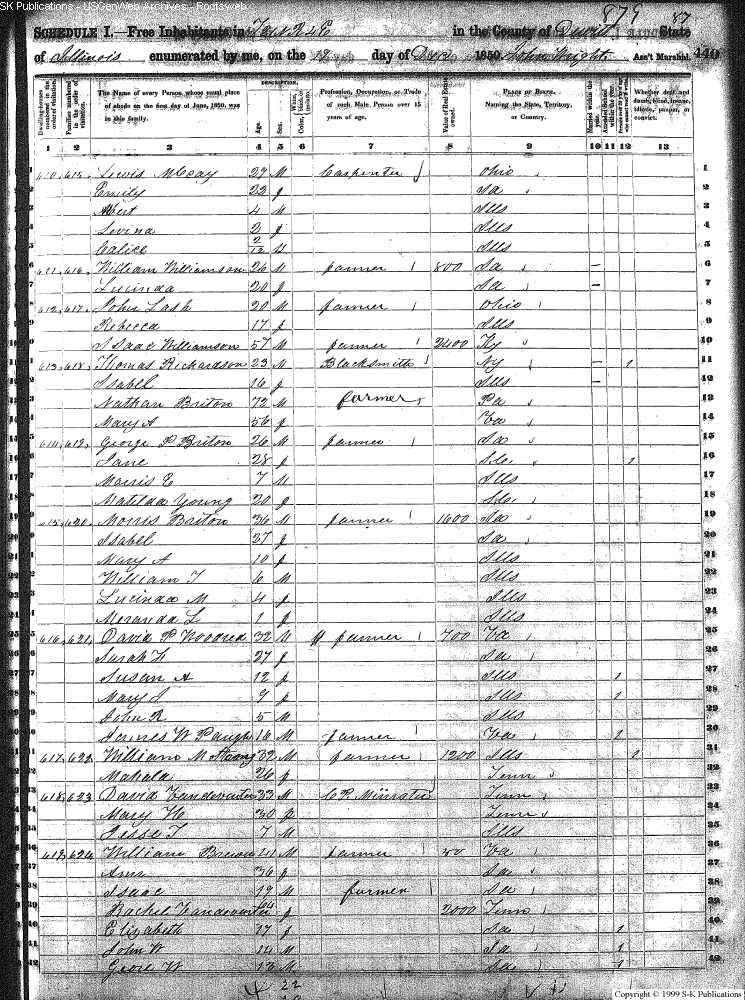 SK Publications - USGenWeb Archives - Rootsweb
879 87
SCHEDULE I.—Free Inhabitants in in the County of Dewitt State
of Illinois enumerated by me, on the day of Dec 1850. John Wright Ass't Marshal. 440
DESCRIPTION.
Dwelling-houses numbered in the order of visitation. Families numbered in the order of visitation. The Name of every Person whose usual place of abode on the first day of June, 1850, was in this family. Age. Sex. White, black, or mulatto. Color, Profession, Occupation, or Trade of each Male Person over 15 years of age. Value of Real Estate owned. PLACE OF BIRTH. Naming the State, Territory, or Country. Married within the year. Attended School within the year. Whether deaf and dumb, blind, insane, idiotic, pauper, or convict.
1 2 3 4 5 6 7 8 9 10 11 12 13
610 615 Lewis McCoy 29 M Carpenter Ohio 1
2 Emily 22 f Ia 2
3 4 M Ills 3
4 Levina 2 f Ills 4
5 Calice 2/12 M Ills 5
611 616 William Williamson 26 M farmer 800 Ia – 6
7 Lucinda 20 f Ia – 7
612 617 John Lash 20 M farmer Ohio 8
9 Rebecca 17 f Ills 9
10 Isaac Williamson 57 M farmer 2400 Ky 10
613 618 Thomas Richardson 23 M Blacksmith NY – 1 11
12 Isabel 16 f Ills – 12
13 Nathan Briton 72 M farmer Pa 13
14 Mary A 56 f Va 14
614 619 George P Briton 26 M farmer Ia 15
16 Jane 28 f 1 16
17 Morris E 7 M Ills 17
18 Matilda Young 20 f 18
615 620 Morris Briton 36 M farmer 1600 Ia 19
20 Isabel 27 f Ia 20
21 Mary A 10 f Ills 21
22 William T 6 M Ills 22
23 Lucinda M 4 f Ills 23
24 Meranda L 1 f Ills 24
616 621 David P 32 M farmer 700 Va 25
26 Sarah 27 f Ia 26
27 Susan A 12 f Ills 1 27
28 Mary 9 f Ills 1 28
29 John R 5 M Ills 29
30 James W 16 M farmer Va 1 30
617 622 William M 32 M farmer 1200 Ills 1 31
32 Mahala 26 f Tenn 32
618 623 David Vandeventer 33 M Minister Tenn 33
34 Mary 30 f Tenn 34
35 Jesse T 7 M Ills 35
619 624 William 41 M farmer 50 Va 36
37 Ann 36 f Ia 37
38 Isaac 19 M farmer Ia 38
39 Rachel Vandeventer f 2000 Tenn 39
40 Elizabeth 17 f Ia 1 40
41 John W 14 M Ia 1 41
42 W 13 M Ia 1 42
22
Copyright © 1999 S-K Publications